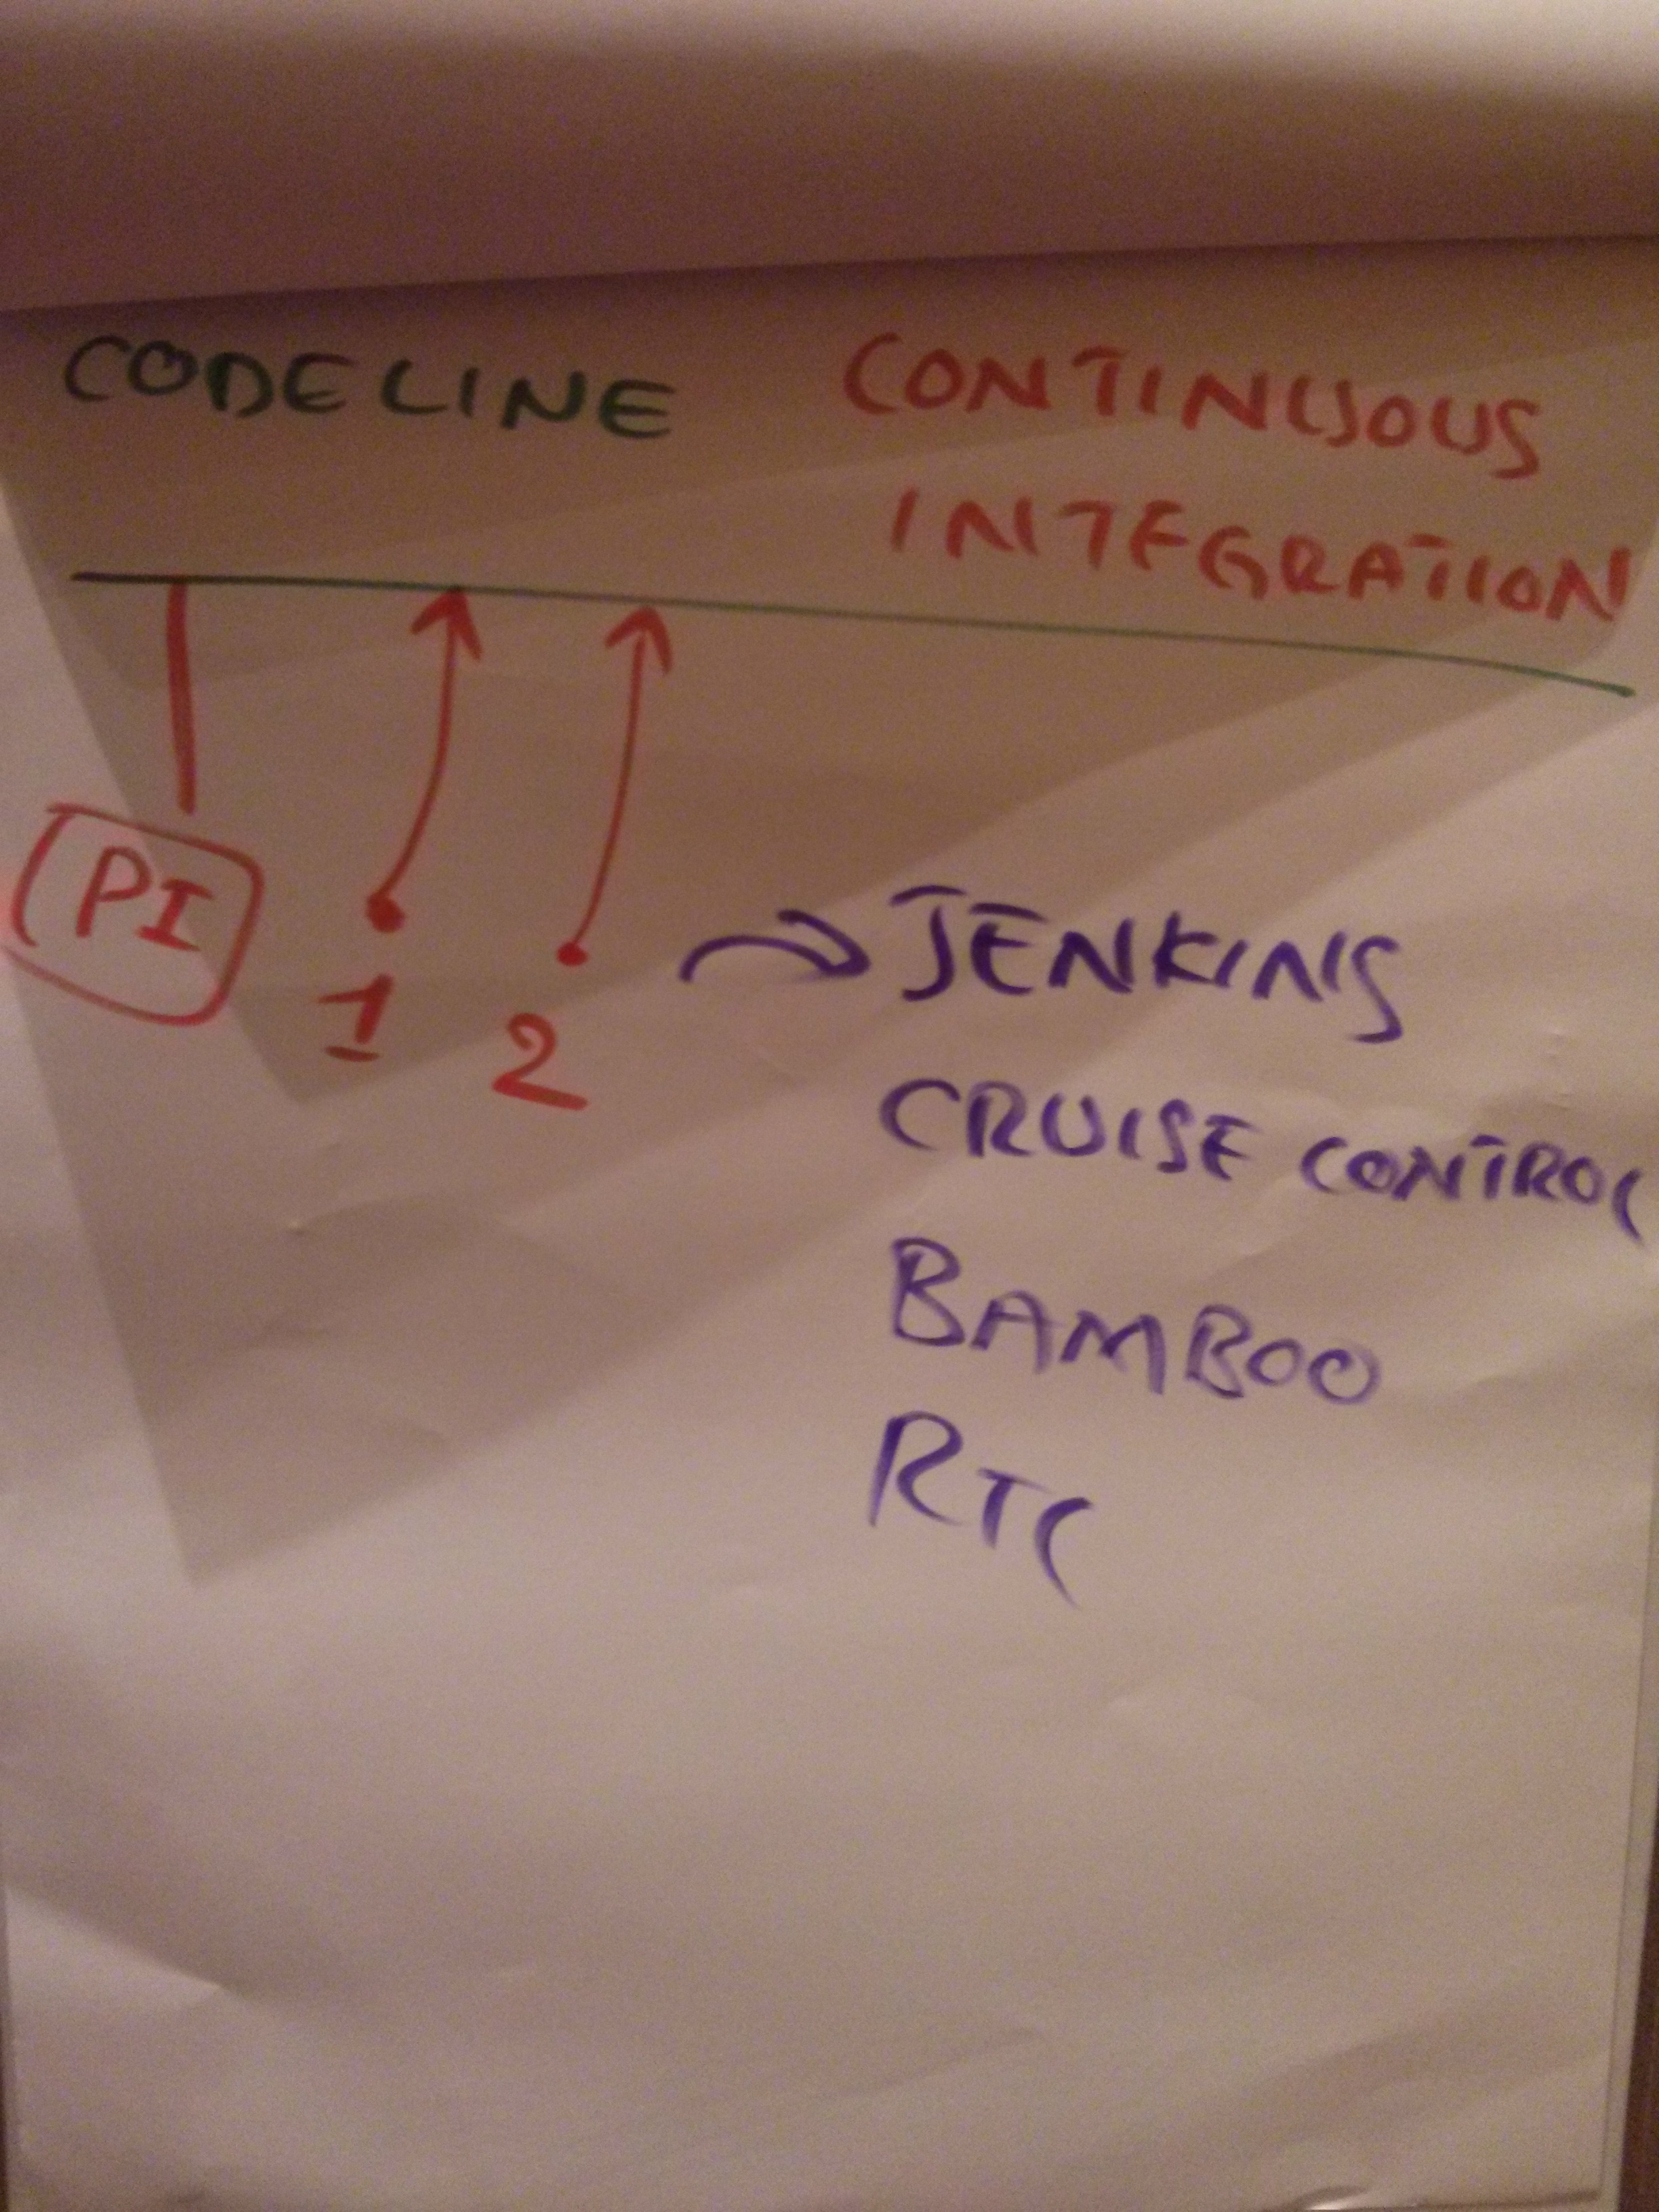 CODELINE CONTINUOUS
INTEGRATION
PI
1
2
JENKINS
CRUISE CONTROL
BAMBOO
RTC